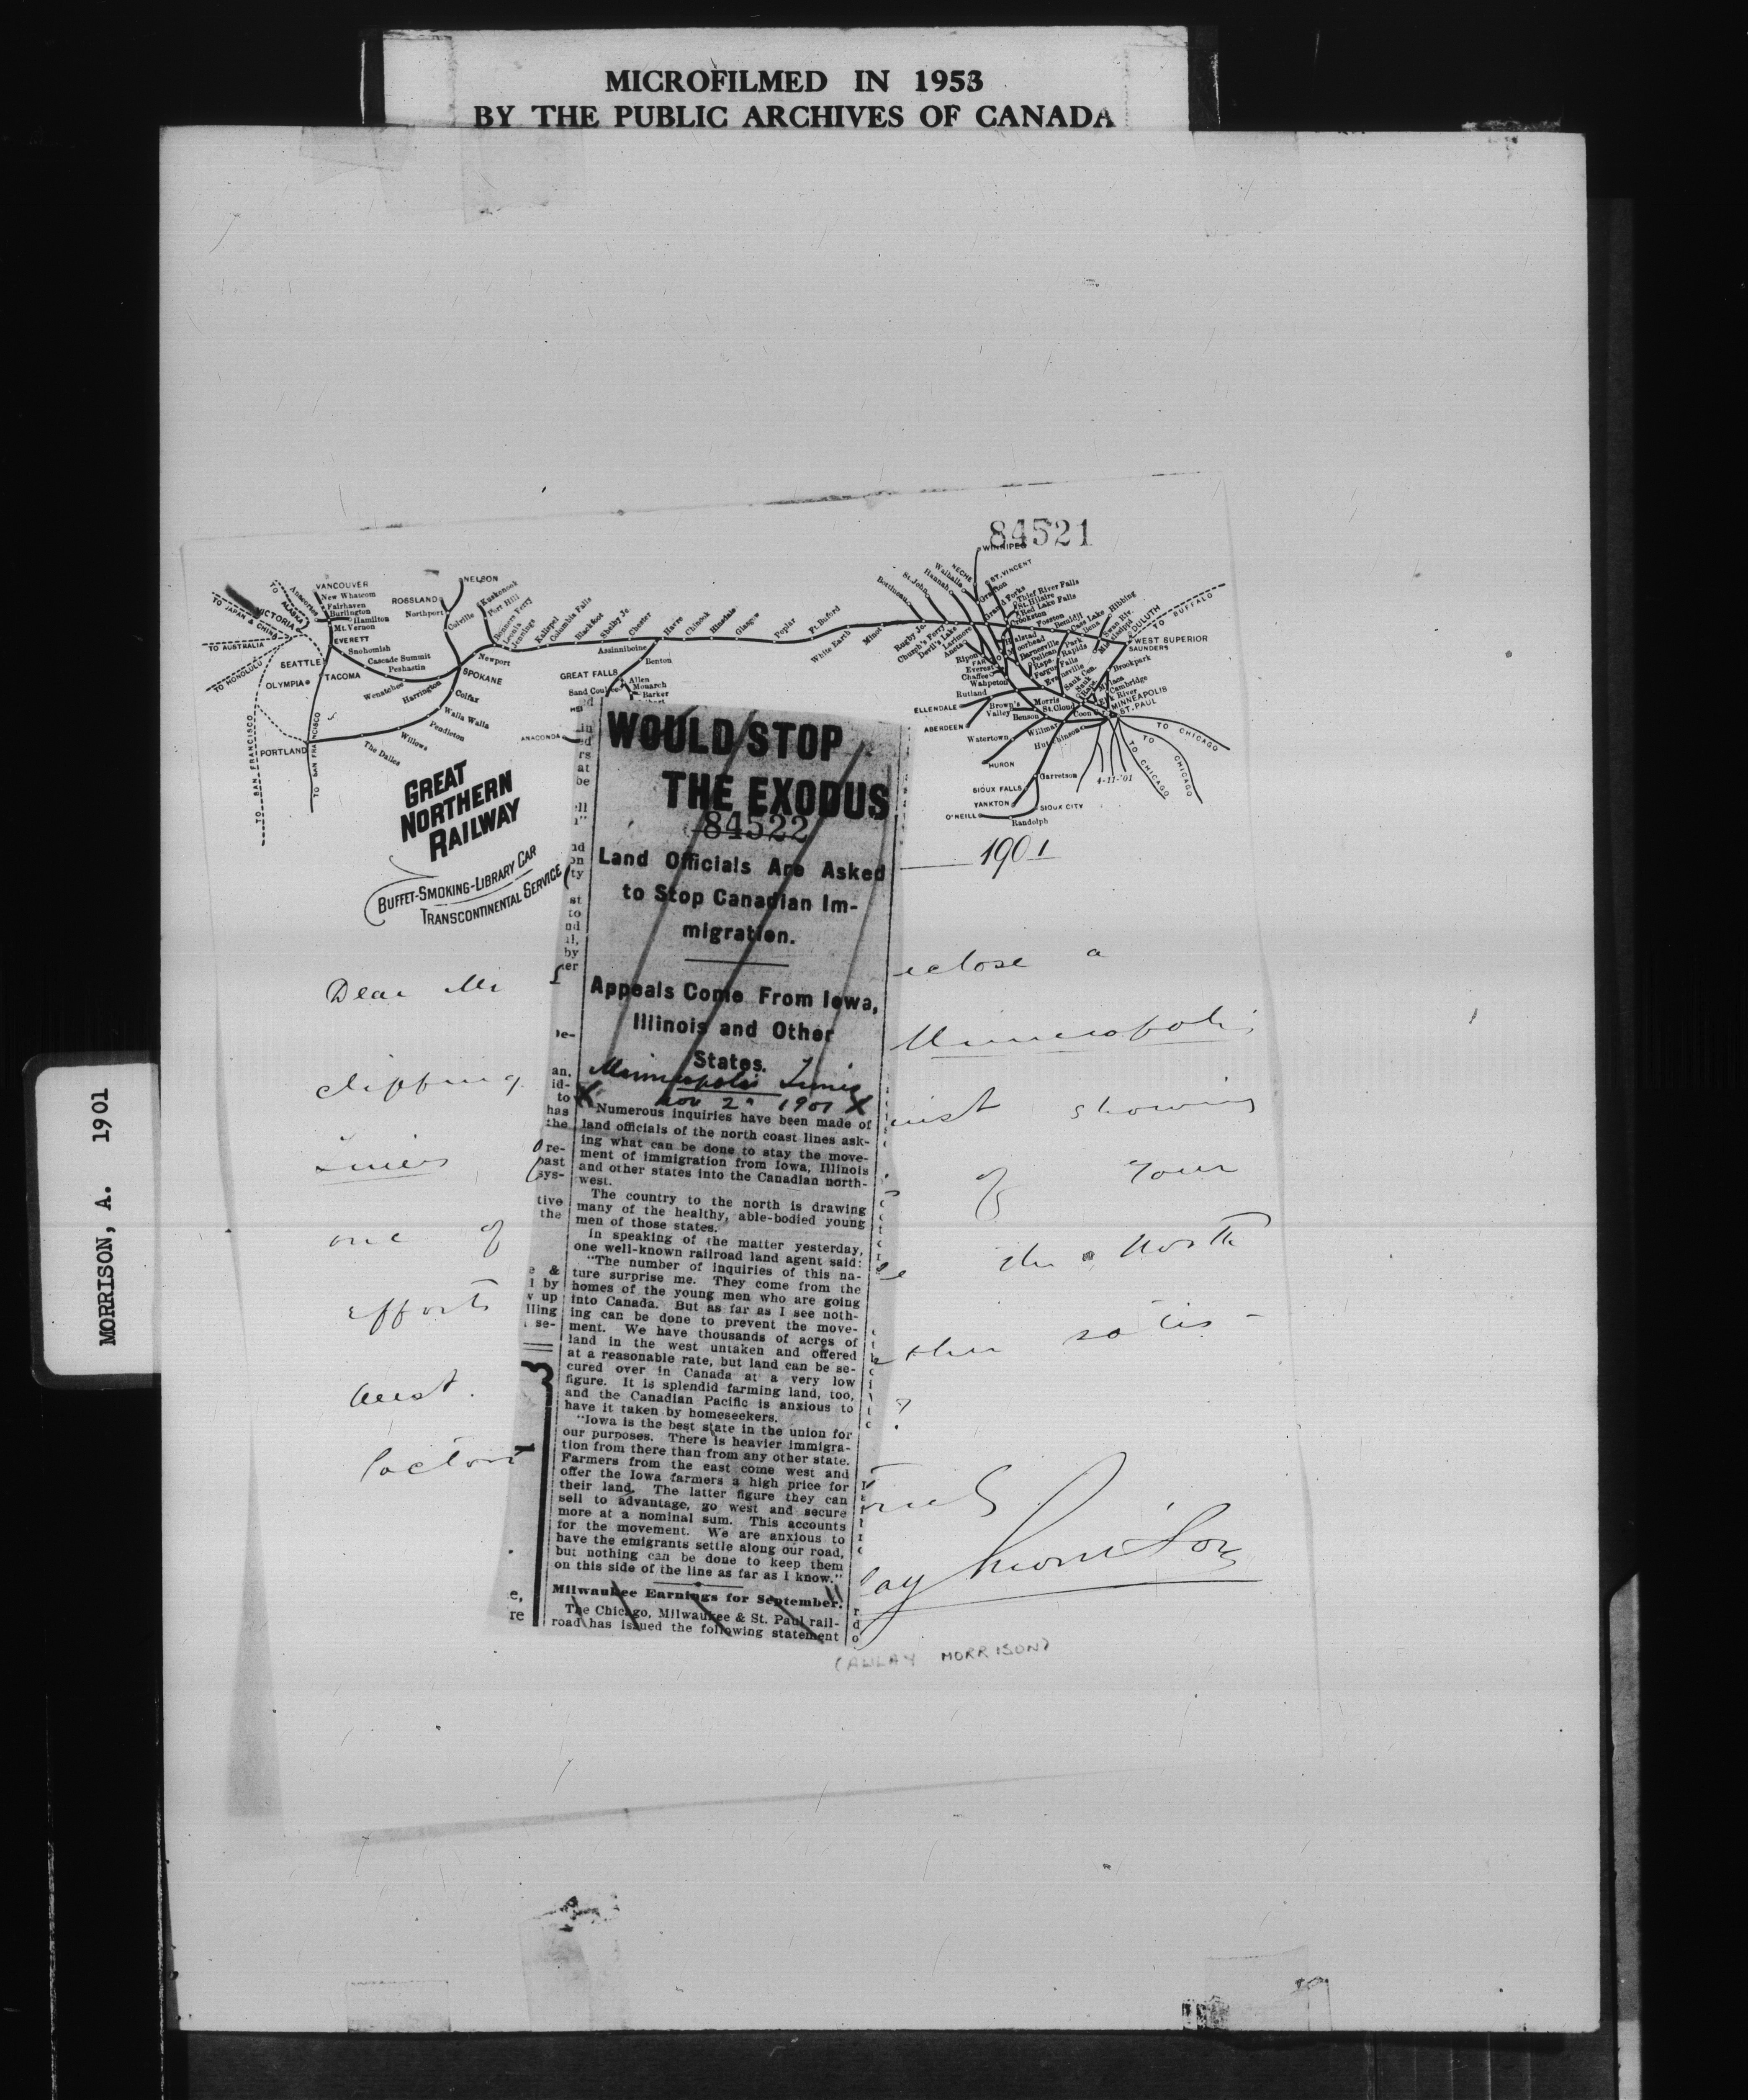 MICROFILMED IN 1953
BY THE PUBLIC ARCHIVES OF CANADA
MORRISON, A. 1901
84521
WINNIPEG
NECHE
ST. VINCENT
Walhalla
Hannah
St. John
Bottineau
Grafton
Grand Forks
Thief River Falls
St. Hilaire
Red Lake Falls
Crookston
Fosston
Bemidji
Cass Lake
Hibbing
Swan Riv.
DULUTH
TO BUFFALO
WEST SUPERIOR
SAUNDERS
Brookpark
Cambridge
Elk River
MINNEAPOLIS
ST. PAUL
TO CHICAGO
TO CHICAGO
TO CHICAGO
4-11-'01
VANCOUVER
New Whatcom
Fairhaven
Burlington
Hamilton
Mt. Vernon
Anacortes
TO ALASKA
VICTORIA
TO JAPAN & CHINA
TO AUSTRALIA
TO HONOLULU
EVERETT
Snohomish
Cascade Summit
Peshastin
SEATTLE
TACOMA
OLYMPIA
Wenatchee
Harrington
SPOKANE
Colfax
Walla Walla
Pendleton
Willows
The Dalles
PORTLAND
TO SAN FRANCISCO
TO SAN FRANCISCO
ROSSLAND
NELSON
Northport
Colville
Kuskonook
Port Hill
Bonners Ferry
Leonia
Jennings
Newport
Kalispel
Columbia Falls
Blackfoot
Shelby Jc.
Chester
Havre
Chinook
Hinsdale
Glasgow
Poplar
Ft. Buford
White Earth
Minot
Rugby Jc.
Church's Ferry
Devil's Lake
Larimore
Aneta
Ripon
Everest
Chaffee
Wahpeton
Rutland
ELLENDALE
ABERDEEN
Brown's Valley
Benson
Morris
St. Cloud
Willmar
Hutchinson
Watertown
HURON
Garretson
SIOUX FALLS
YANKTON
SIOUX CITY
O'NEILL
Randolph
Moorhead
Barnesville
Pelican Rapids
Fergus Falls
Evansville
Park Rapids
Assinniboine
Benton
GREAT FALLS
Sand Coulee
Allen
Monarch
Barker
ANACONDA
GREAT
NORTHERN
RAILWAY
BUFFET-SMOKING-LIBRARY CAR
TRANSCONTINENTAL SERVICE
1901
Dear Mr
eclose a
clipping
Minneapolis
Times
showing
one of
of your
efforts
the North
West.
satis-
factory
?
Morrison
(AULAY MORRISON)
WOULD STOP
THE EXODUS
84522
Land Officials Are Asked
to Stop Canadian Im-
migration.
Appeals Come From Iowa,
Illinois and Other
States.
Minneapolis Times
X Nov 2" 1901 X
Numerous inquiries have been made of
land officials of the north coast lines ask-
ing what can be done to stay the move-
ment of immigration from Iowa, Illinois
and other states into the Canadian north-
west.
The country to the north is drawing
many of the healthy, able-bodied young
men of those states.
In speaking of the matter yesterday,
one well-known railroad land agent said:
"The number of inquiries of this na-
ture surprise me. They come from the
homes of the young men who are going
into Canada. But as far as I see noth-
ing can be done to prevent the move-
ment. We have thousands of acres of
land in the west untaken and offered
at a reasonable rate, but land can be se-
cured over in Canada at a very low
figure. It is splendid farming land, too,
and the Canadian Pacific is anxious to
have it taken by homeseekers.
"Iowa is the best state in the union for
our purposes. There is heavier immigra-
tion from there than from any other state.
Farmers from the east come west and
offer the Iowa farmers a high price for
their land. The latter figure they can
sell to advantage, go west and secure
more at a nominal sum. This accounts
for the movement. We are anxious to
have the emigrants settle along our road,
but nothing can be done to keep them
on this side of the line as far as I know."
Milwaukee Earnings for September.
The Chicago, Milwaukee & St. Paul rail-
road has issued the following statement